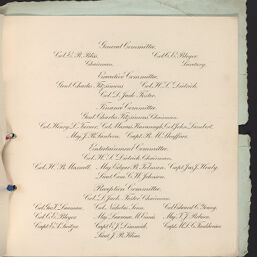 General Committee.
Col. E. R. Bliss, Col. C. E. Bleyer,
Chairman. Secretary.
Executive Committee.
Genl. Charles Fitzsimons Col. H. L. Dietrich,
Col. L. Jack Foster.
Finance Committee.
Genl. Charles Fitzsimons, Chairman.
Col. Henry L. Turner, Col. Marcus Kavanagh, Col. John Lambert,
Maj. J. B. Sanborn, Capt. R. M.
Entertainment Committee.
Col. H. L. Dietrich, Chairman.
Col. H. B. Maxwell, Maj. Edgar B. Tolman, Capt. Jas. J. Healy,
Lieut. Com. C. W. Johnson.
Reception Committee.
Col. L. Jack Foster, Chairman.
Col. Geo. T. Col. Nicholas Senn, Col. Edward C. Young,
Col. C. E. Bleyer, Maj. Lawrence M. Ennis, Maj. T. J.
Capt. E. A. Capt. E. J. Capt. M. L. C.
Lieut. J. R.